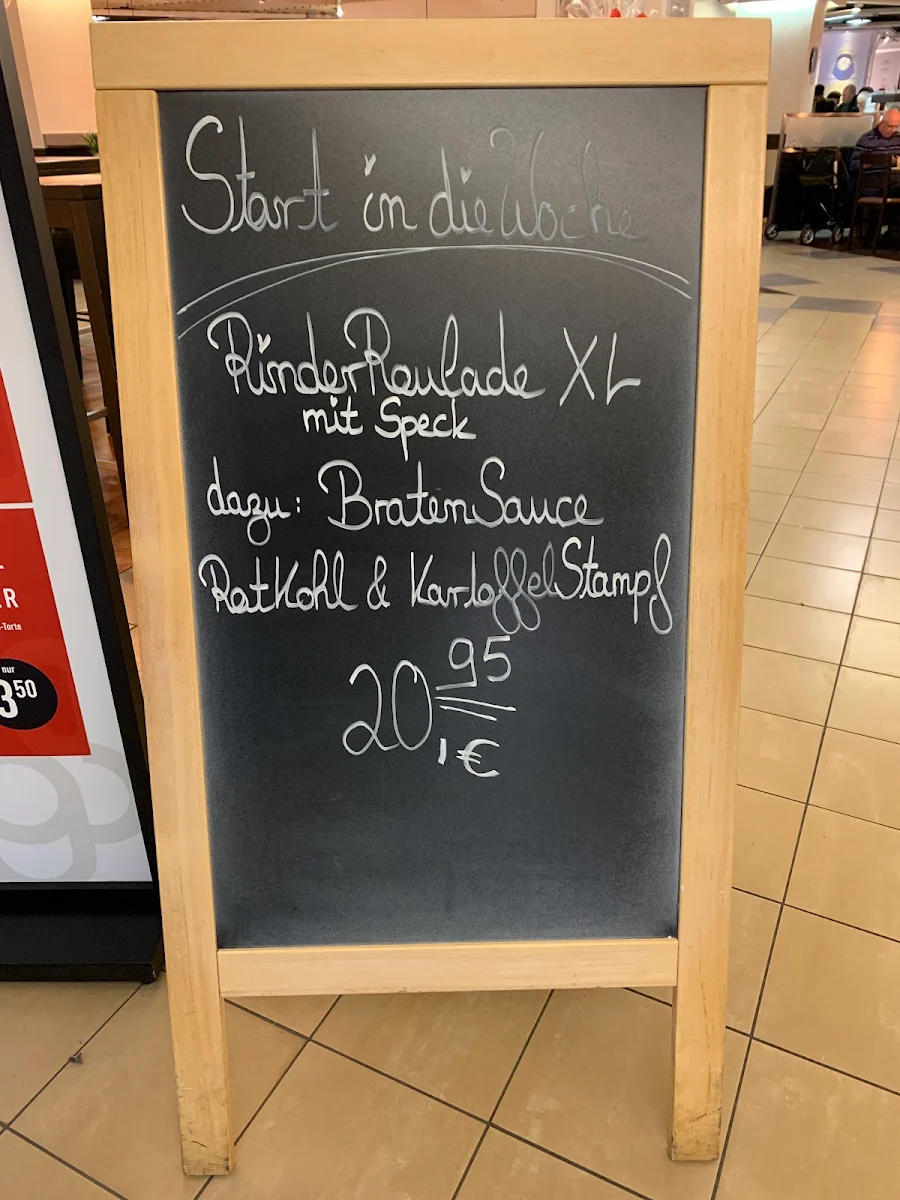 Start in die Woche
RinderRoulade XL
mit Speck
dazu: BratenSauce
RotKohl & KartoffelStampf
20 95
1€
R
-Torte
nur
3 50